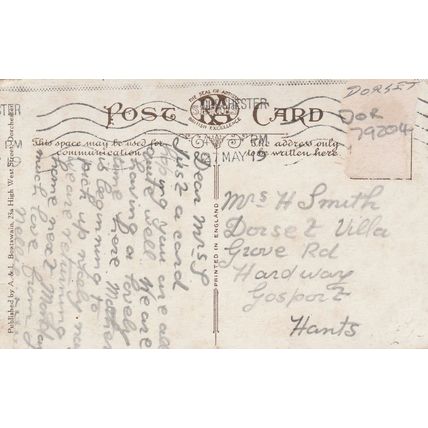 DORSET
DOR
79204
CHESTER
THE SEAL OF ARTISTIC
BRITISH EXCELLENCE
POST CARD
This space may be used for
communication.
The address only
to be written here.
PM
7 MAY 19
Published by A. & L. Bontawain, 27a High West Street, Dorchester
PRINTED IN ENGLAND
Dear Mrs S
Just a card
hoping you are all
quite well we are
having a lovely
time here Mother
is beginning to
pick up nicely now
we are returning
home next Monday
must love from
Nellie
Mrs H Smith
Dorset Villa
Grove Rd
Hardway
Gosport
Hants